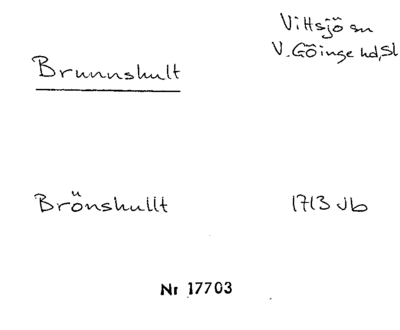 Vittsjö sn
V. Göinge hd, Sk
Brunnshult
Brönshullt 1713 Jb
Nr 17703